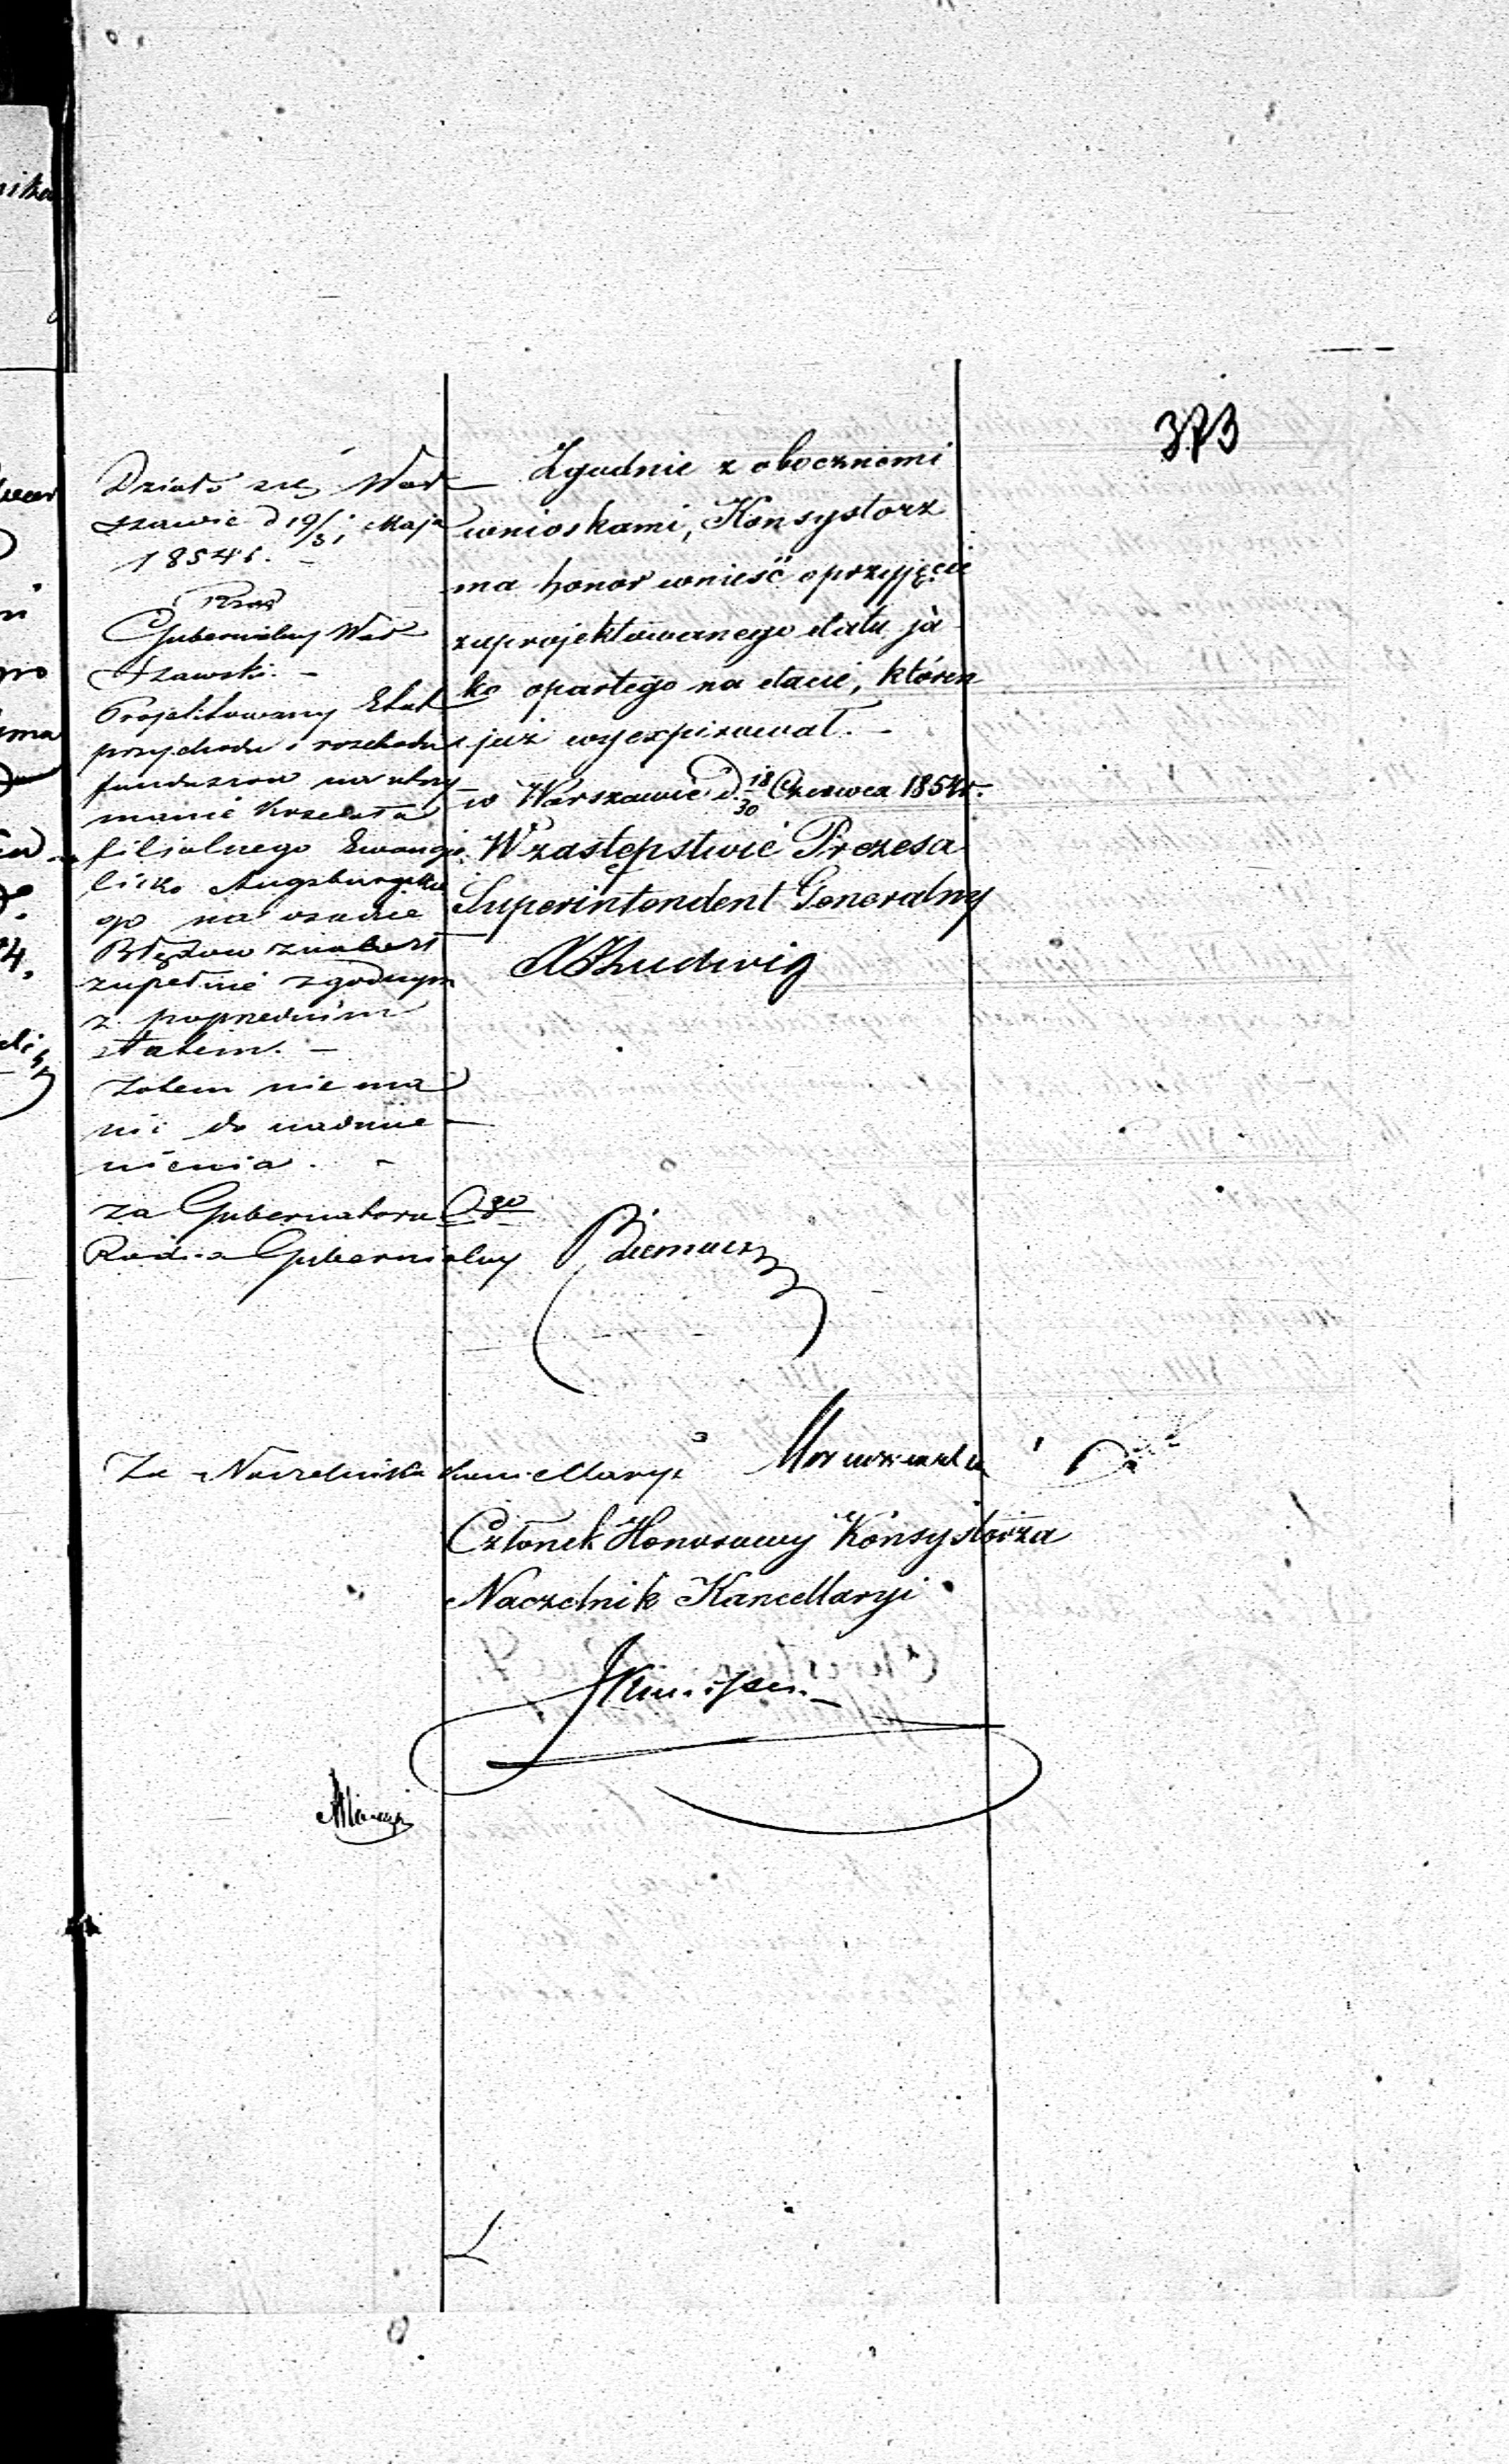 373
Działo się w War
szawie d 19/31 Maja
1854 r.
Rząd
Gubernialny War
szawski. –
Projektowany Etat
przychodu i rozchodu
funduszów na utrzy
manie Kościoła
filialnego Ewangie
licko Augsburgskie
go na osadzie
Błędow znalazł
zupełnie zgodnym
z poprzednim
etatem. –
Zatem nie ma
nic do nadmie
nienia. –
za Gubernatora Cgo
Radca Gubernialny
Za Naczelnika Kancellaryi
Zgodnie z obocznemi
wnioskami, Konsystorz
ma honor wnieść o przyjęcie
zaprojektowanego etatu ja
ko opartego na etacie, któren
już wyexpirował. –
w Warszawie d. 18/30 Czerwca 1854 r.
W zastępstwie Prezesa
Superintendent Generalny
Ludwig
Członek Honorowy Konsystorza
Naczelnik Kancellaryi